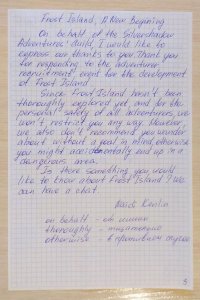 Frost Island, A New Begining
On behalf of the Silvershadow
Adventures' Guild, I would like to
express our thanks to you. Thank you
for responding to the adventurer
recruitment event for the development
of Frost Island.
Since Frost Island hasn't been
thoroughly explored yet, and for the
personal safety of all adventures, we
won't restrict you any way. However,
we also don't recommend you wander
about without a goal in mind, otherwise
you might accidentally end up in a
dangerous area.
Is there something you would
like to know about Frost Island? We
can have a chat.
on behalf - от имени
thoroughly - тщательно
otherwise - в противном случае
5